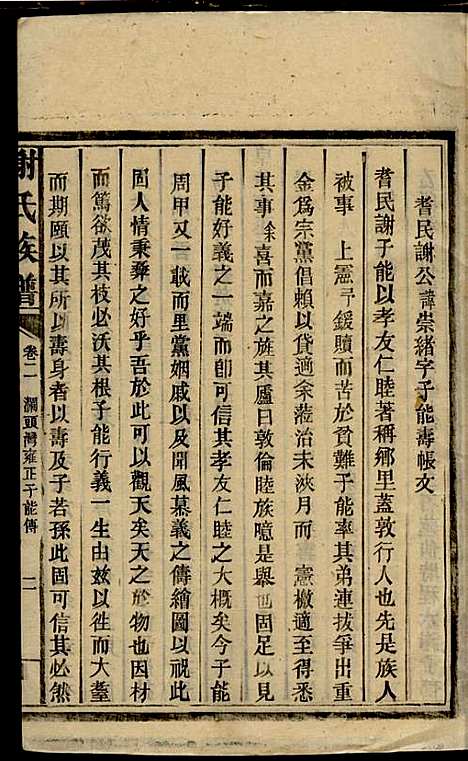 耆民謝公諱崇緒字子能壽帳文
耆民謝子能以孝友仁睦著稱鄉里蓋敦行人也先是族人
被事　上憲予鍰贖而苦於貧難子能率其弟連拔爭出重
金爲宗黨倡賴以貸適余蒞治未浹月而　憲檄適至得悉
其事余喜而嘉之旌其廬曰敦倫睦族噫是舉也固足以見
子能好義之一端而卽可信其孝友仁睦之大概矣今子能
周甲又一載而里黨姻戚以及聞風慕義之儔繪圖以祝可
固人情秉彝之好乎吾於此可以觀天矣天之於物也因材
而篤欲茂其枝必沃其根子能行義一生由兹以徃而大耋
而期頤以其所以壽身者以壽及子若孫此固可信其必然
謝氏族譜　卷二　瀾頭灣雍正子能傳　二